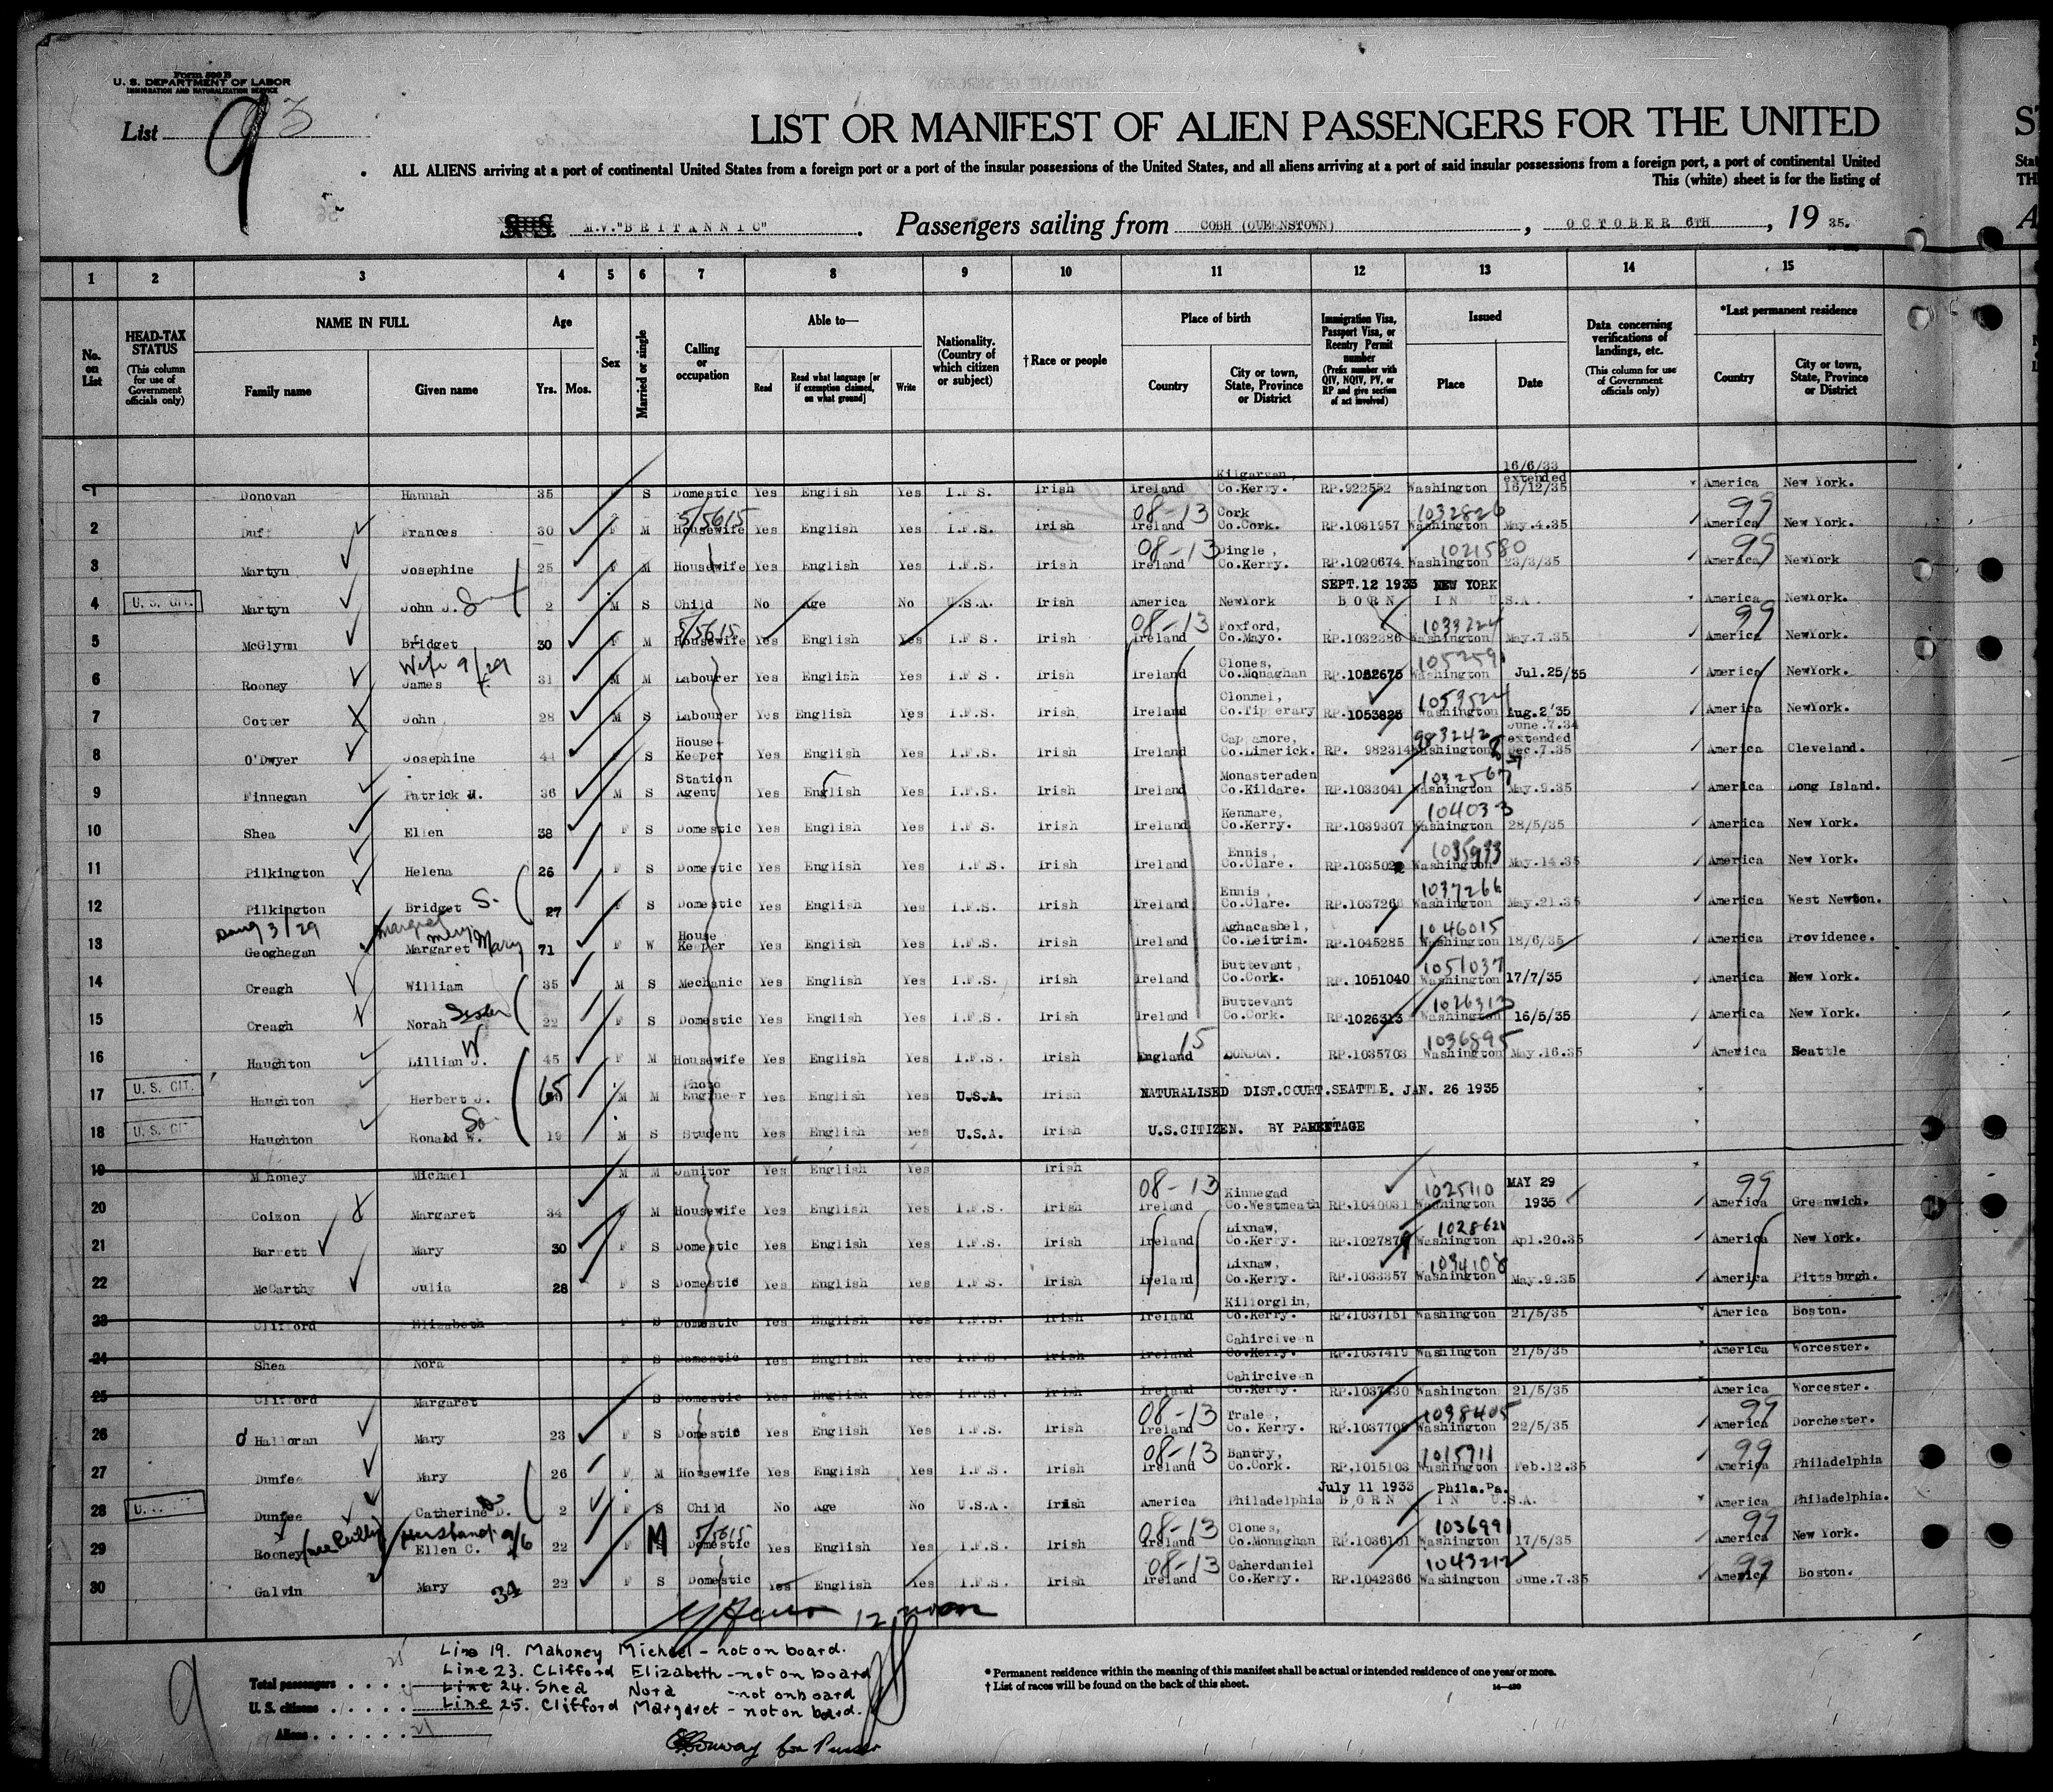 Form 500 B
U. S. DEPARTMENT OF LABOR
IMMIGRATION AND NATURALIZATION SERVICE
List 9 3
LIST OR MANIFEST OF ALIEN PASSENGERS FOR THE UNITED
ALL ALIENS arriving at a port of continental United States from a foreign port or a port of the insular possessions of the United States, and all aliens arriving at a port of said insular possessions from a foreign port, a port of continental United
This (white) sheet is for the listing of
S. S. M.V."BRITANNIC". Passengers sailing from COBH (QUEENSTOWN), OCTOBER 6TH, 19 35.
1 2 3 4 5 6 7 8 9 10 11 12 13 14 15
No. on List
HEAD-TAX STATUS (This column for use of Government officials only)
NAME IN FULL Family name Given name
Age Yrs. Mos.
Sex
Married or single
Calling or occupation
Able to— Read Read what language [or if exemption claimed, on what ground] Write
Nationality. (Country of which citizen or subject)
†Race or people
Place of birth Country City or town, State, Province or District
Immigration Visa, Passport Visa, or Reentry Permit number (Prefix number with QIV, NQIV, PV, or RP and give section of act involved)
Issued Place Date
Data concerning verifications of landings, etc. (This column for use of Government officials only)
*Last permanent residence Country City or town, State, Province or District
1 Donovan Hannah 35 F S Domestic Yes English Yes I.F.S. Irish Ireland Kilgarvan, Co.Kerry. RP.922552 Washington 16/6/33 extended 16/12/35 America New York.
2 Duff Frances 30 F M Housewife 5/5615 Yes English Yes I.F.S. Irish 08-13 Ireland Cork Co.Cork. RP.1031957 1032826 Washington May.4.35 99 America New York.
3 Martyn Josephine 25 F M Housewife Yes English Yes I.F.S. Irish 08-13 Ireland Dingle, Co.Kerry. RP.1020674 1021580 Washington 23/3/35 99 America NewYork
4 U. S. CIT. Martyn John J. Son 2 M S Child No Age No U.S.A. Irish America NewYork SEPT.12 1933 NEW YORK BORN IN U.S.A. America NewYork.
5 McGlynn Bridget 30 F M Housewife 5/5615 Yes English Yes I.F.S. Irish 08-13 Ireland Foxford, Co.Mayo. RP.1032386 1033224 Washington May.7.35 99 America NewYork.
6 Rooney Wife 9/29 James 31 M M Labourer Yes English Yes I.F.S. Irish Ireland Clones, Co.Monaghan RP.1052675 Washington Jul.25/35 America NewYork.
7 Cotter John 28 M S Labourer Yes English Yes I.F.S. Irish Ireland Clonmel, Co.Tipperary RP.1053825 1053524 Washington Aug.2'35 America NewYork.
8 O'Dwyer Josephine F S House-Keeper Yes English Yes I.F.S. Irish Ireland Cappamore, Co.Limerick. RP. 982314 983242 Washington June.7.34 extended Dec.7.35 America Cleveland.
9 Finnegan Patrick 36 M S Station Agent Yes English Yes I.F.S. Irish Ireland Monasteraden Co.Kildare. RP.1033041 1032567 Washington May.9.35 America Long Island.
10 Shea Ellen 38 F S Domestic Yes English Yes I.F.S. Irish Ireland Kenmare, Co.Kerry. RP.1039307 104033 Washington 28/5/35 America New York.
11 Pilkington Helena 26 F S Domestic Yes English Yes I.F.S. Irish Ireland Ennis, Co.Clare. RP.103502 1035933 Washington May.14.35 America New York.
12 Pilkington Bridget S. 27 F S Domestic Yes English Yes I.F.S. Irish Ireland Ennis, Co.Clare. RP.1037266 1037266 Washington May.21.35 America West Newton.
13 Geoghegan Margaret Mary 71 F W House Keeper Yes English Yes I.F.S. Irish Ireland Aghacashel, Co.Leitrim. RP.1045285 1046015 Washington 18/6/35 America Providence.
14 Creagh William 35 M S Mechanic Yes English Yes I.F.S. Irish Ireland Buttevant, Co.Cork. RP.1051040 1051037 Washington 17/7/35 America New York.
15 Creagh Norah Sister 22 F S Domestic Yes English Yes I.F.S. Irish Ireland Buttevant Co.Cork. RP.1026313 1026313 Washington 16/5/35 America New York.
16 Haughton Lillian J. W 45 F M Housewife Yes English Yes I.F.S. Irish 15 England LONDON. RP.1035703 1036895 Washington May.16.35 America Seattle
17 U. S. CIT. Haughton Herbert J. 65 M M Photo Engineer Yes English Yes U.S.A. Irish NATURALISED DIST.COURT.SEATTLE. JAN. 26 1935
18 U. S. CIT Haughton Ronald W. So 19 M S Student Yes English Yes U.S.A. Irish U.S.CITIZEN. BY PARENTAGE
19 Mahoney Michael M M Janitor Yes English Yes Irish
20 Coizon Margaret 34 F M Housewife Yes English Yes I.F.S. Irish 08-13 Ireland Kinnegad Co.Westmeath RP.1040031 1025110 Washington MAY 29 1935 99 America Greenwich.
21 Barrett Mary 30 F S Domestic Yes English Yes I.F.S. Irish Ireland Lixnaw, Co.Kerry. RP.102787 102862 Washington Apl.20.35 America New York.
22 McCarthy Julia 28 F S Domestic Yes English Yes I.F.S. Irish Ireland Lixnaw, Co.Kerry. RP.1033357 1034108 Washington May.9.35 America Pittsburgh.
23 Clifford Elizabeth F S Domestic Yes English Yes I.F.S. Irish Ireland Killorglin, Co.Kerry. RP.1037151 Washington 21/5/35 America Boston.
24 Shea Nora F S Domestic Yes English Yes I.F.S. Irish Ireland Cahirciveen Co.Kerry. RP.1037419 Washington 21/5/35 America Worcester.
25 Clifford Margaret S Domestic Yes English Yes I.F.S. Irish Ireland Cahirciveen Co.Kerry. RP.1037430 Washington 21/5/35 America Worcester.
26 O' Halloran Mary 23 F S Domestic Yes English Yes I.F.S. Irish 08-13 Ireland Tralee, Co. Kerry. RP.1037709 1038405 Washington 22/5/35 99 America Dorchester.
27 Dunfee Mary 26 F M Housewife Yes English Yes I.F.S. Irish 08-13 Ireland Bantry, Co.Cork. RP.1015103 1015911 Washington Feb.12.35 99 America Philadelphia
28 Dunfee Catherine D. 2 F S Child No Age No U.S.A. Irish America Philadelphia July 11 1933 Phila.Pa. BORN IN U.S.A. America Philadelphia.
29 Rooney (nee Reilly) Husband 9/6 Ellen C. 22 F M 5/5615 Domestic Yes English Yes I.F.S. Irish 08-13 Ireland Clones, Co.Monaghan RP.1036101 1036991 Washington 17/5/35 99 America New York.
30 Galvin Mary 34 22 F S Domestic Yes English Yes I.F.S. Irish 08-13 Ireland Caherdaniel Co.Kerry. RP.1042366 1043212 Washington June.7.35 99 America Boston.
12 noon
Line 19. Mahoney Michael - not on board.
Line 23. Clifford Elizabeth - not on board
Line 24. Shea Nora - not on board
Line 25. Clifford Margaret - not on board.
Total passengers
U. S. citizens
Aliens 21
9
Conway for Purser
* Permanent residence within the meaning of this manifest shall be actual or intended residence of one year or more.
† List of races will be found on the back of this sheet.